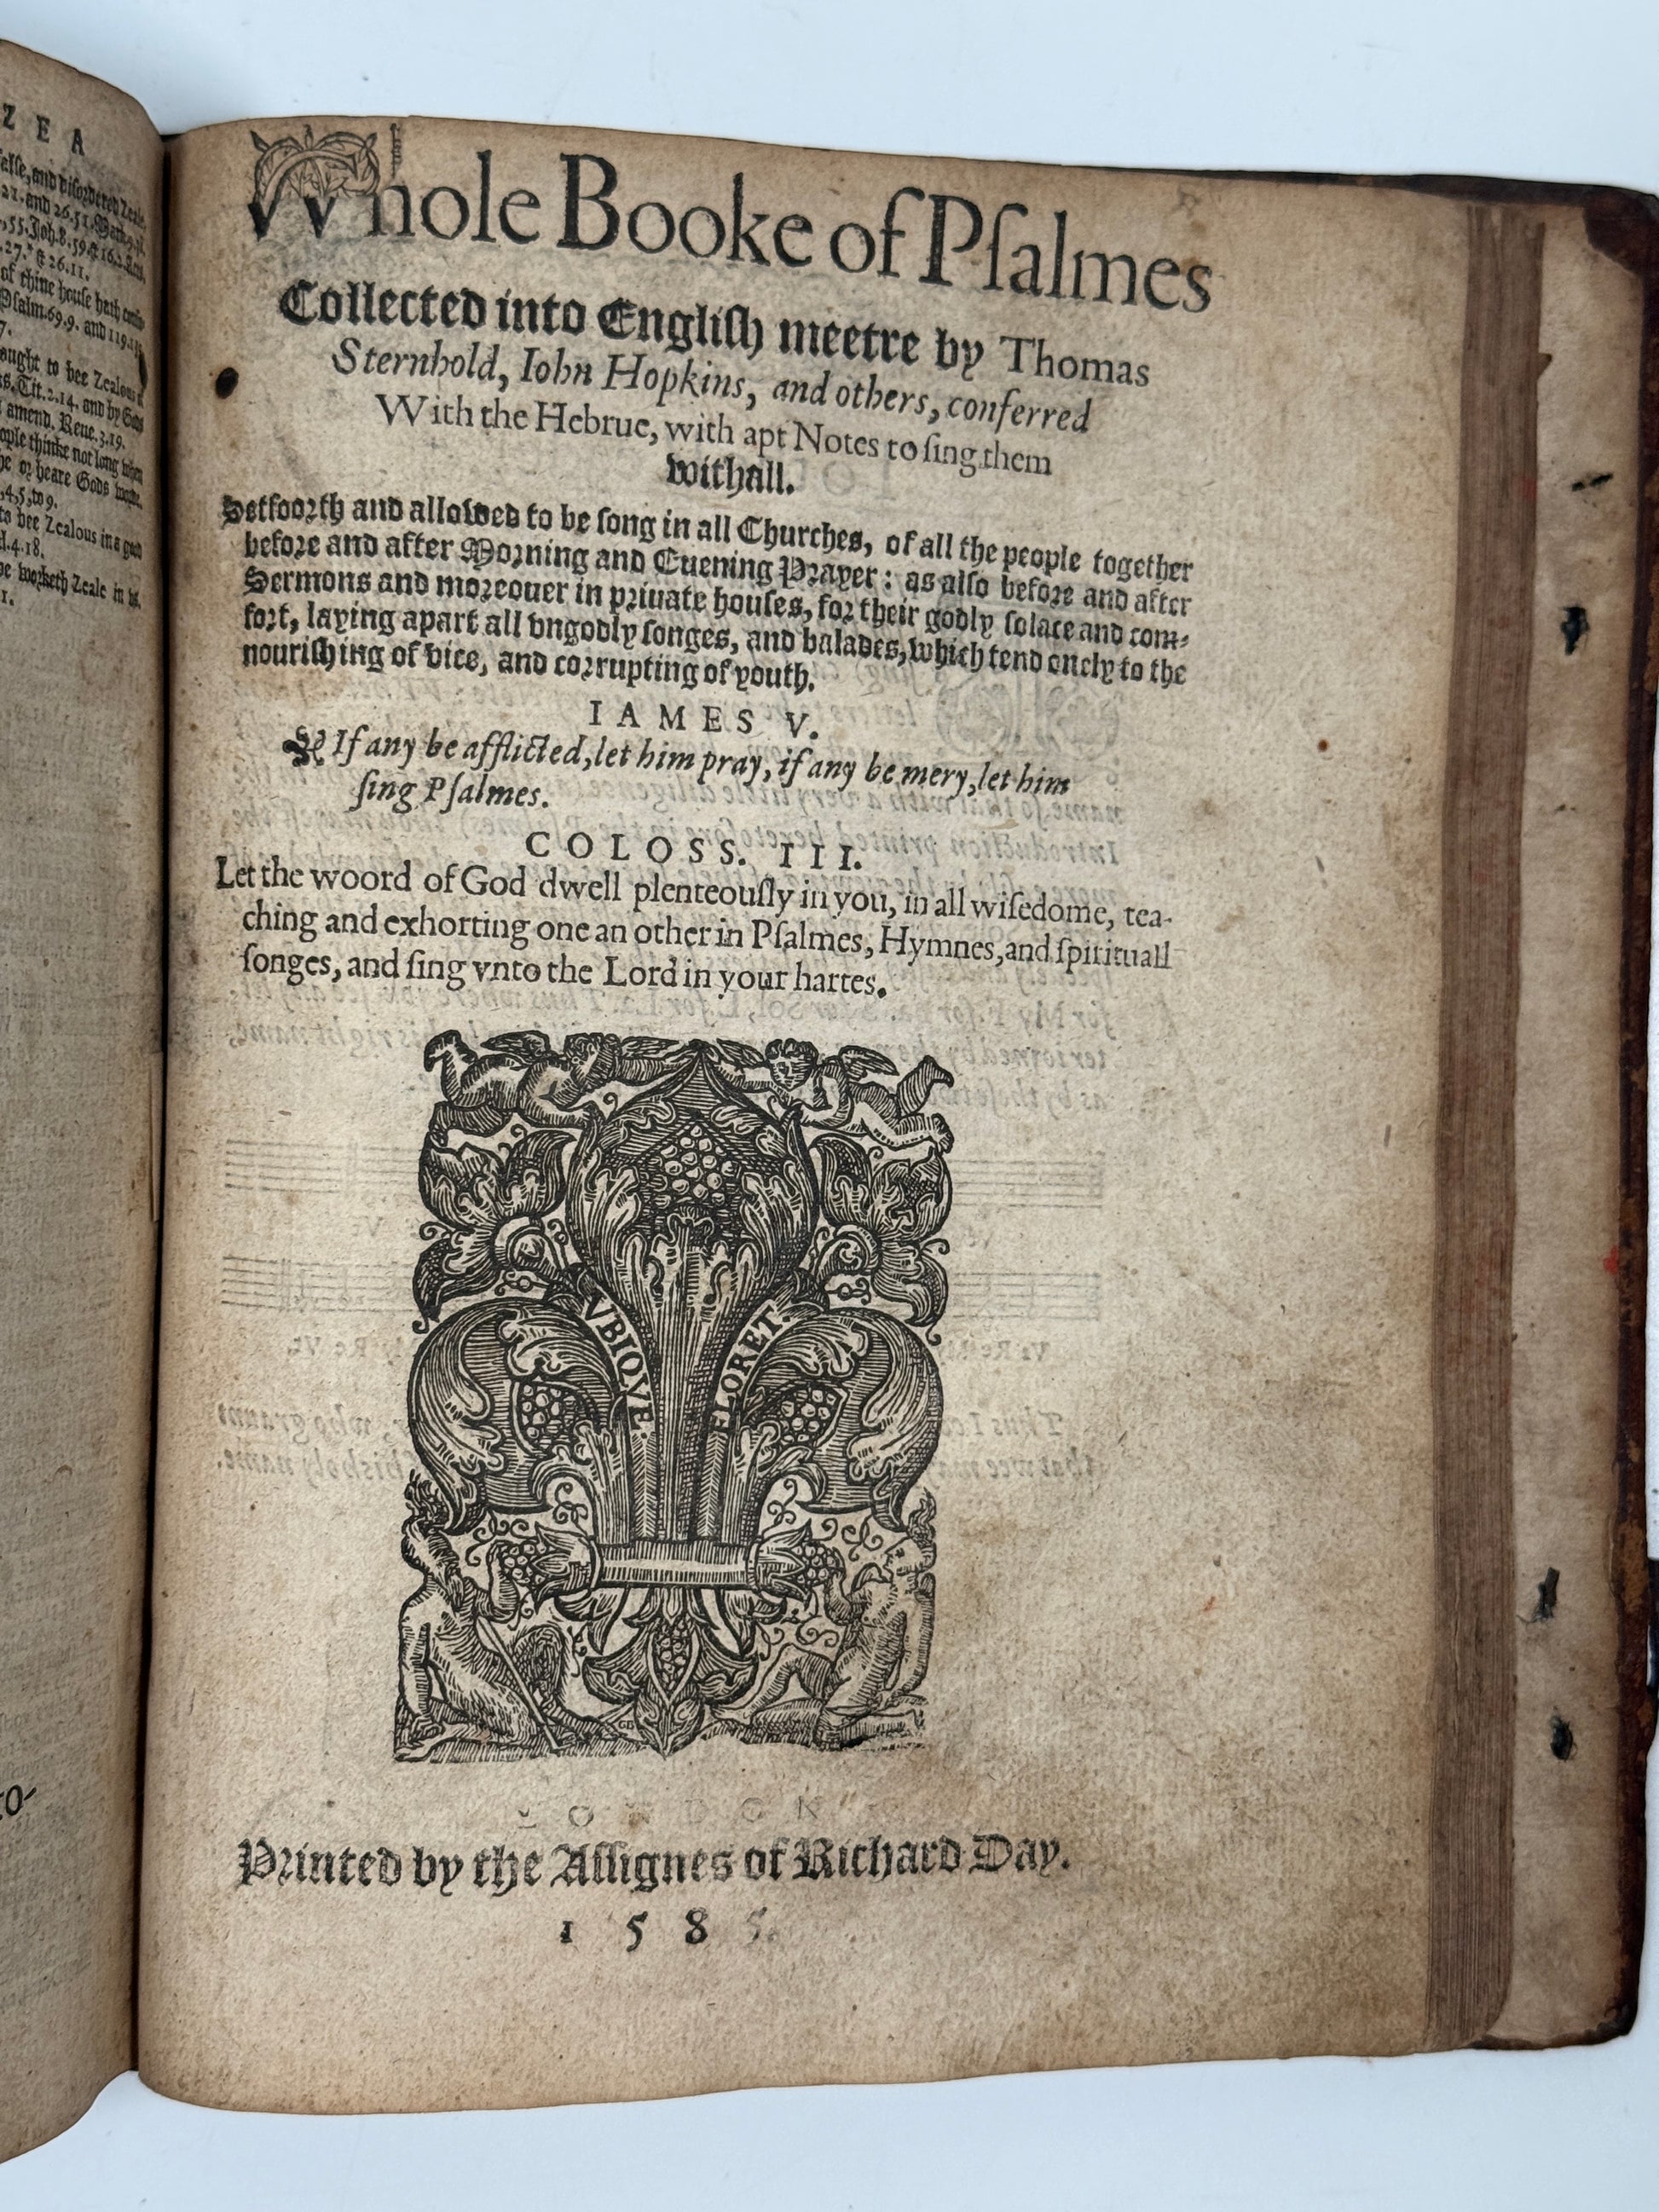 Z E A
false, and disordered Zeale,
21. and 26.51.
55. Joh. 8. 59. & 16.2.
27. & 26.11.
of thine house hath
Psalm. 69.9. and 119.
7.
ought to bee Zealous
Tit. 2.14. and by Gods
amend. Reue. 3.19.
ople thinke not long when
he or heare Gods
4,5, to 9.
to bee Zealous in a good
4.18.
worketh Zeale in
1.
Whole Booke of Pſalmes
Collected into Engliſh meetre by Thomas
Sternhold, Iohn Hopkins, and others, conferred
With the Hebrue, with apt Notes to ſing them
withall.
Setfoorth and allowed to be ſong in all Churches, of all the people together
before and after Morning and Euening Prayer: as alſo before and after
Sermons and moreouer in priuate houſes, for their godly ſolace and com-
fort, laying apart all vngodly ſonges, and balades, which tend onely to the
nouriſhing of vice, and corrupting of youth.
IAMES V.
If any be afflicted, let him pray, if any be mery, let him
ſing Pſalmes.
COLOSS. III.
Let the woord of God dwell plenteouſly in you, in all wiſedome, tea-
ching and exhorting one an other in Pſalmes, Hymnes, and ſpirituall
ſonges, and ſing vnto the Lord in your hartes.
VBIQVE FLORET.
GB
LONDON
Printed by the Aſſignes of Richard Day.
1585.